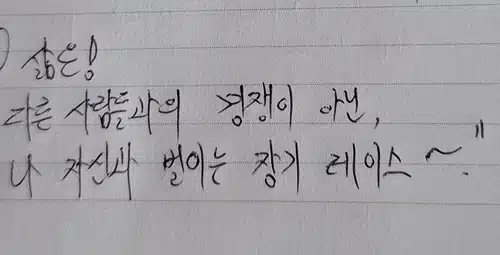 삶은!
다른 사람들과의 경쟁이 아닌,
나 자신과 벌이는 장기 레이스~."